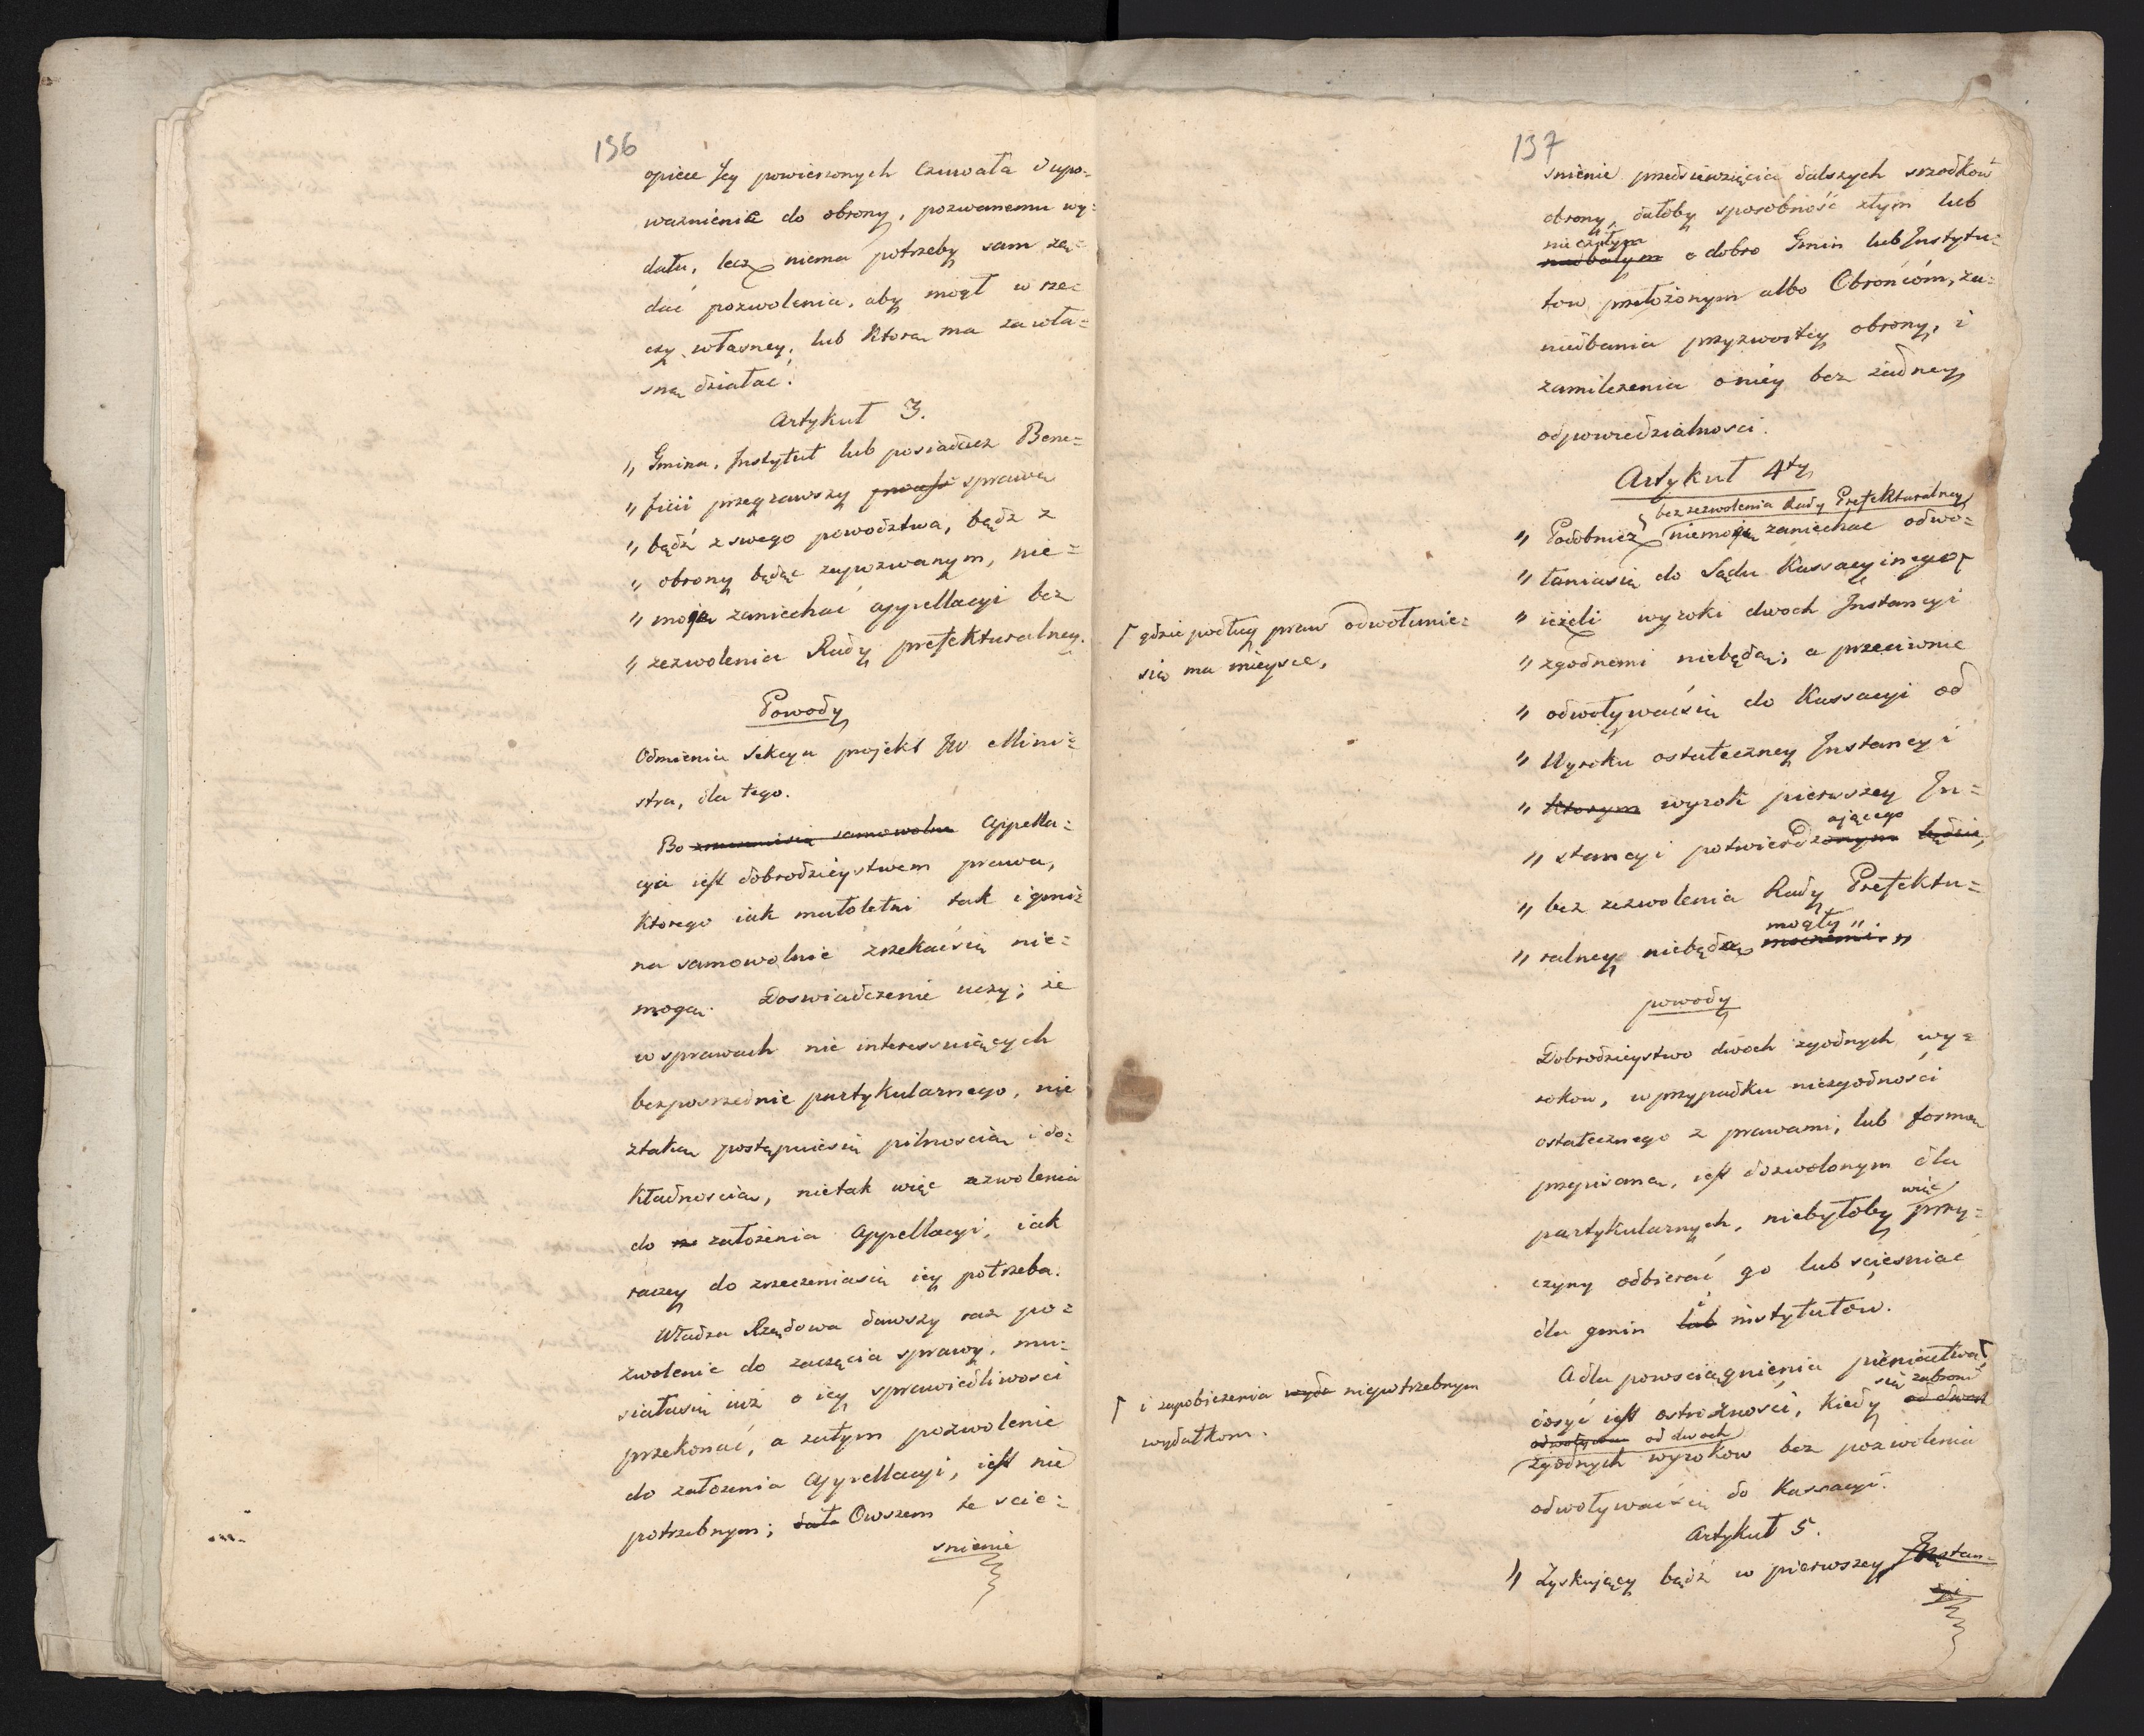 136
opiece Jey powierzonych czuwała i upo=
ważnienie do obrony, pozwanemu wy=
dała, lecz niema potrzeby sam żą=
dać pozwolenia, aby mogł w rze=
czy własney, lub ktorą ma za wła=
sną działać.
Artykuł 3.
„ Gmina, Instytut lub posiadacz Bene=
„ ficii przegrawszy sprawę
„ bądź z swego powodztwa, bądz z
„ obrony będąc zapozwanym, nie=
„ mogą zaniechać appellacyi bez
„ zezwolenia Rady prefekturalney.
Powody
Odmienia Sekcya projekt JW Mini=
stra, dla tego.
Bo appella=
cya iest dobrodzieystwem prawa,
ktorego iak małoletni tak i gmi=
na samowolnie zrzekaćsię nie=
mogą. Doswiadczenie uczy; że
w sprawach nie interessuiących
bezposrzednie partykularnego, nie
ztaką postępuiesię pilnoscią i do=
kładnoscią, nietak więc zezwolenia
do założenia appellacyi, iak
raczey do zrzeczeniasię iey potrzeba.
Władza Rządowa dawszy raz po=
zwolenie do zaczęcia sprawy, mu=
siałasię iuż o iey sprawiedliwosci
przekonać, a zatym pozwolenie
do założenia appellacyi, iest nie
potrzebnym; dała Owszem te scie=
snienie
137
snienie przedsiewzięcia dalszych srzodkow
obrony, dałoby sposobność złym lub
nieczułym
niedbałym o dobro Gmin lub Instytu=
tow przełożonym albo Obrońcóm, za=
niedbania przyzwoitey obrony, i
zamilczenia o niéy bez żadney
odpowiedzialnosci.
Artykuł 4ty
bez zezwolenia Rady Prefekturalney
„ Podobnież niemogą zaniechać odwo=
„ łaniasię do Sądu Kassacyinego
„ ieżeli wyroki dwoch Instancyi
„ zgodnemi niebędą; a przeciwnie
„ odwoływaćsię do Kassacyi od
„ Wyroku ostateczney Instancyi
„ ktorym wyrok pierwszey In=
aiącego
„ stancyi potwierdzonym będzie,
„ bez zezwolenia Rady Prefektu=
mogły „.
„ ralney niebędą mocnemi. „
⌈ gdzie podług praw odwołanie=
się ma mieysce,
powody
Dobrodzieystwo dwoch zgodnych wy=
rokow, w przypadku niezgodności
ostatecznego z prawami, lub formą
przepisaną, iest dozwolonym dla
więc
partykularnych, niebyłoby przy=
czyny odbierać go lub sciesniać
i
dla gmin lub instytutow.
A dla powsciągnienia pieniactwa ⌈
się zabroni
dosyć iest ostrożności, kiedy od dwoch
odwoływać od dwoch
zgodnych wyrokow bez pozwolenia
odwoływaćsię do Kassacyi.
⌈ i zapobieżenia wyda niepotrzebnym
wydatkom.
Artykuł 5.
„ Zyskujący bądź w pierwszey Instan=
cyi